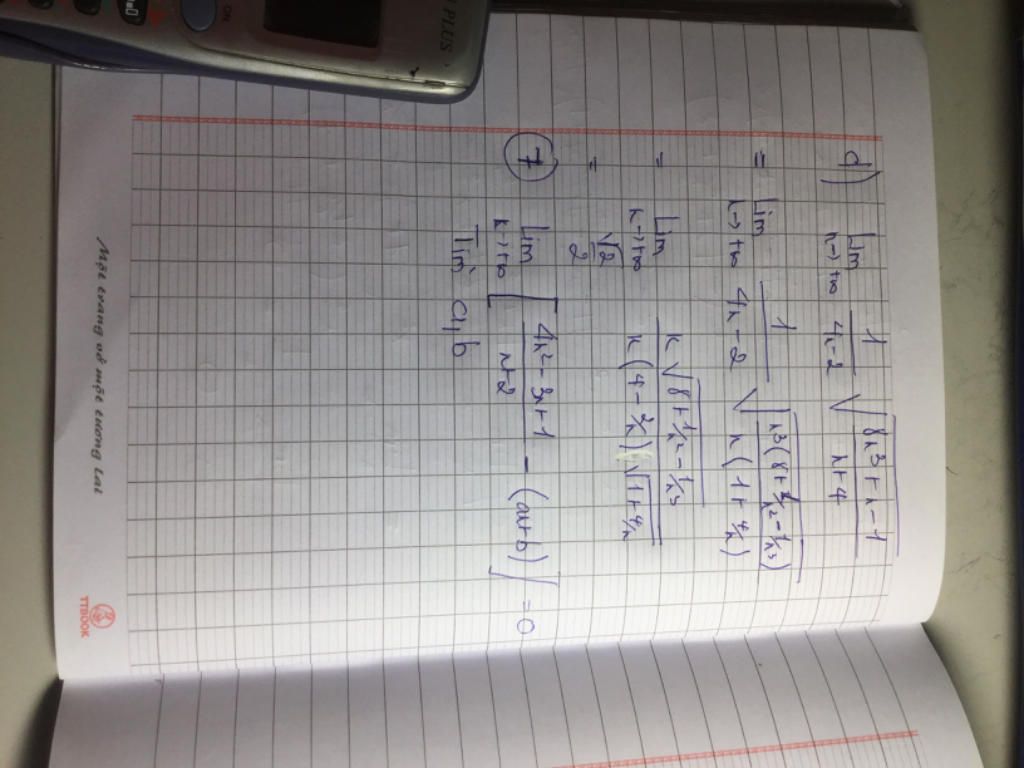 d) Lim x→+∞ 1/(4x-2) √((8x³+x-1)/(x+4))
= Lim x→+∞ 1/(4x-2) √((x³(8+1/x²-1/x³))/(x(1+4/x)))
= Lim x→+∞ (x√(8+1/x²-1/x³))/(x(4-2/x)√(1+4/x))
= √2/2
7 Lim x→+∞ [(4x²-3x+1)/(x+2) - (ax+b)] = 0
Tìm a,b
Một trang vở một tương lai
TTBOOK
PLUS
ON